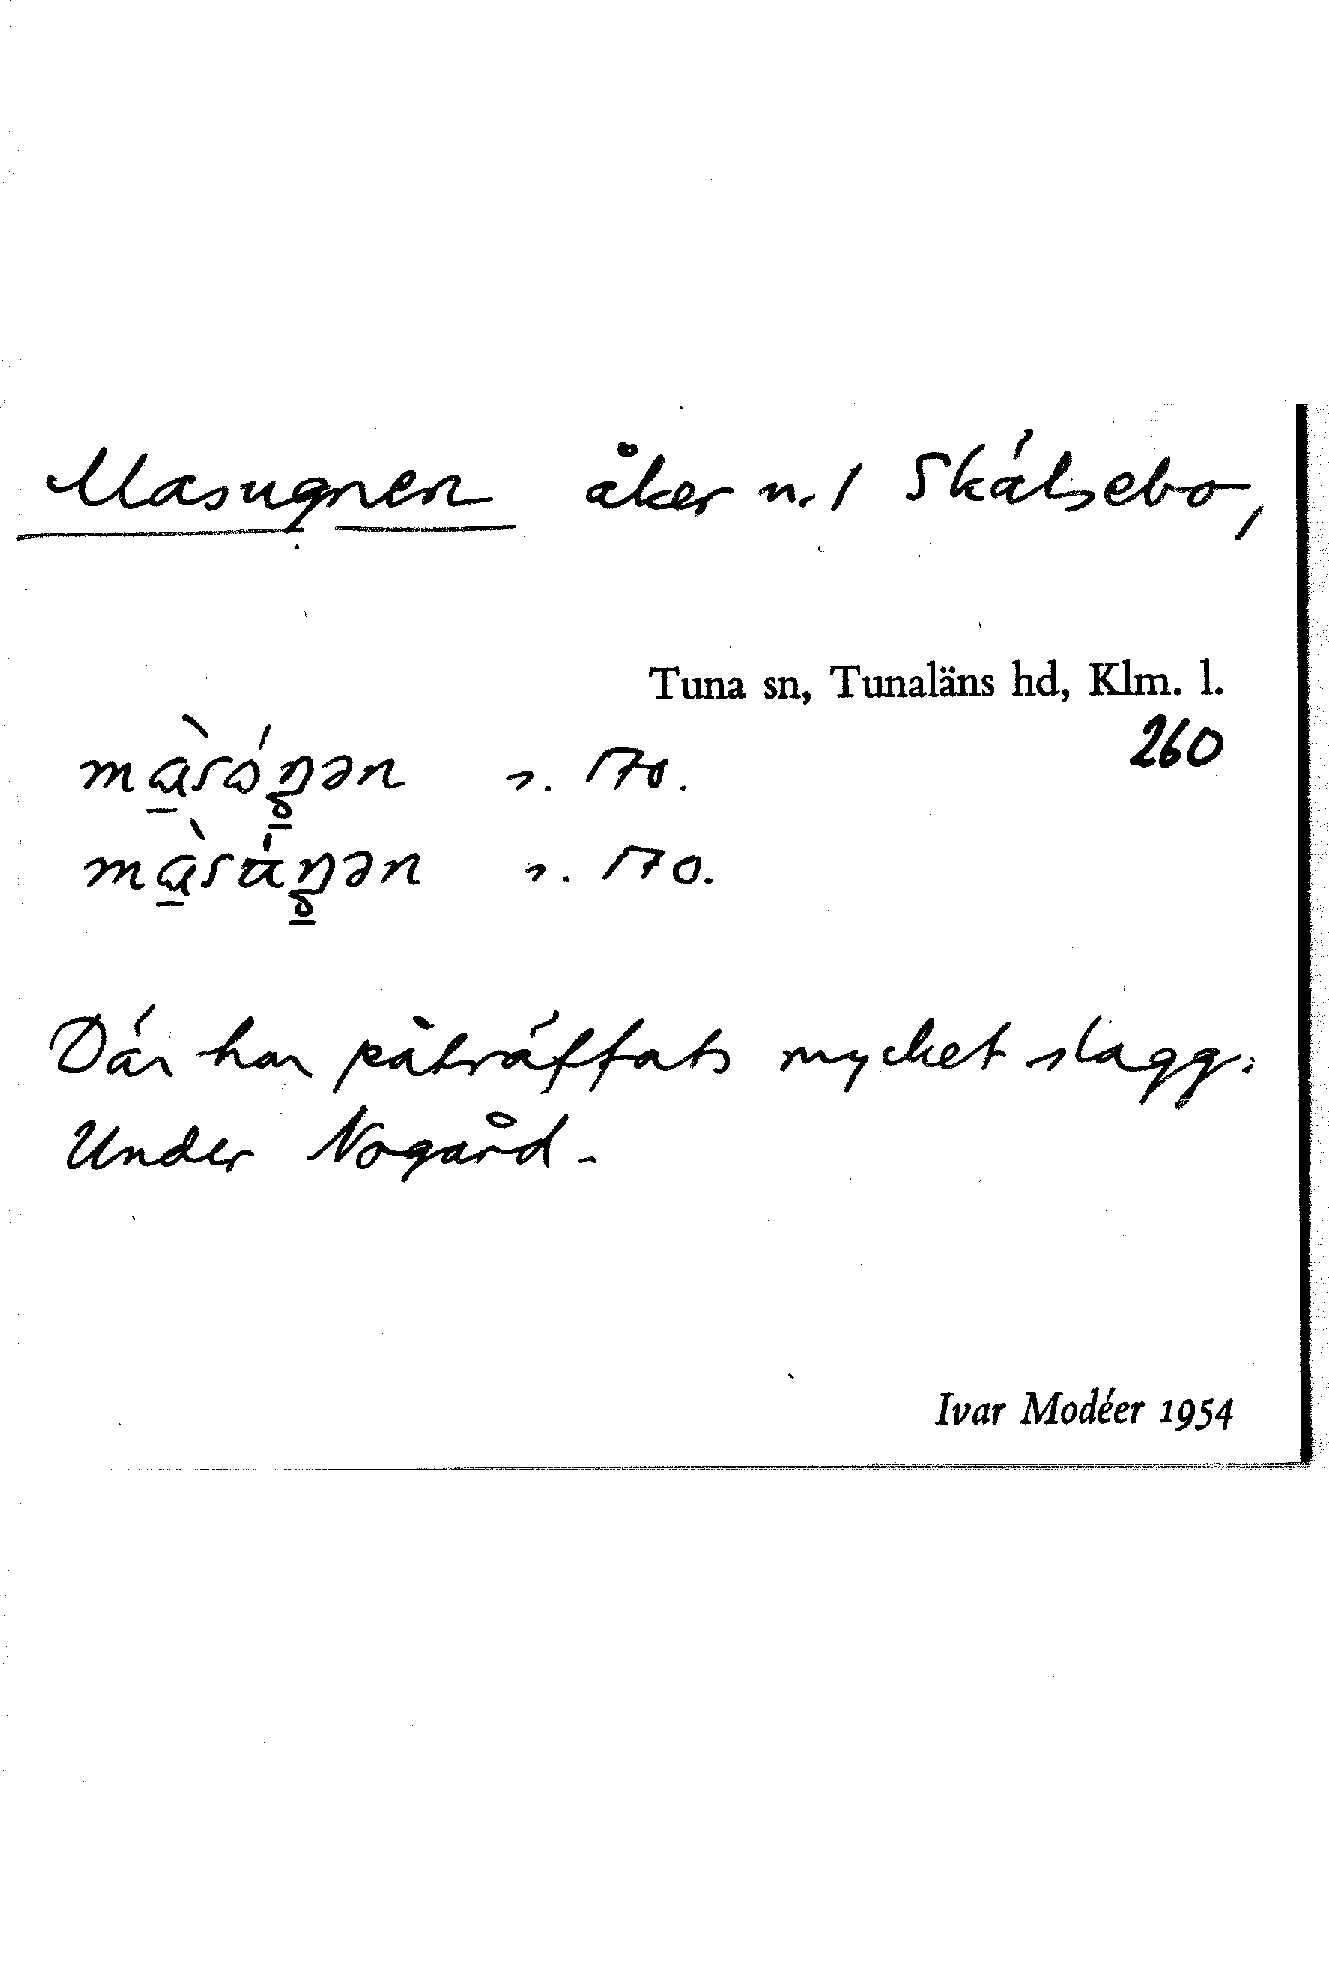 Masugnen åker n. / Skälsebo,
Tuna sn, Tunaläns hd, Klm. l.
260
170.
170.
Där har påträffats mycket slagg.
Under Nogård.
Ivar Modéer 1954